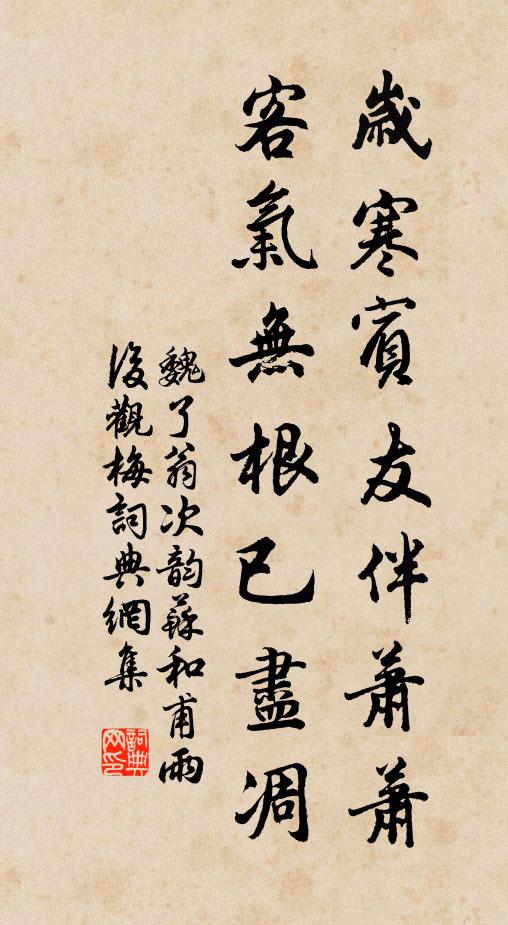 歲寒賓友伴蕭蕭
客氣無根已盡凋
魏了翁次韵蘇和甫雨
後觀梅詞典網集
詞典
網印